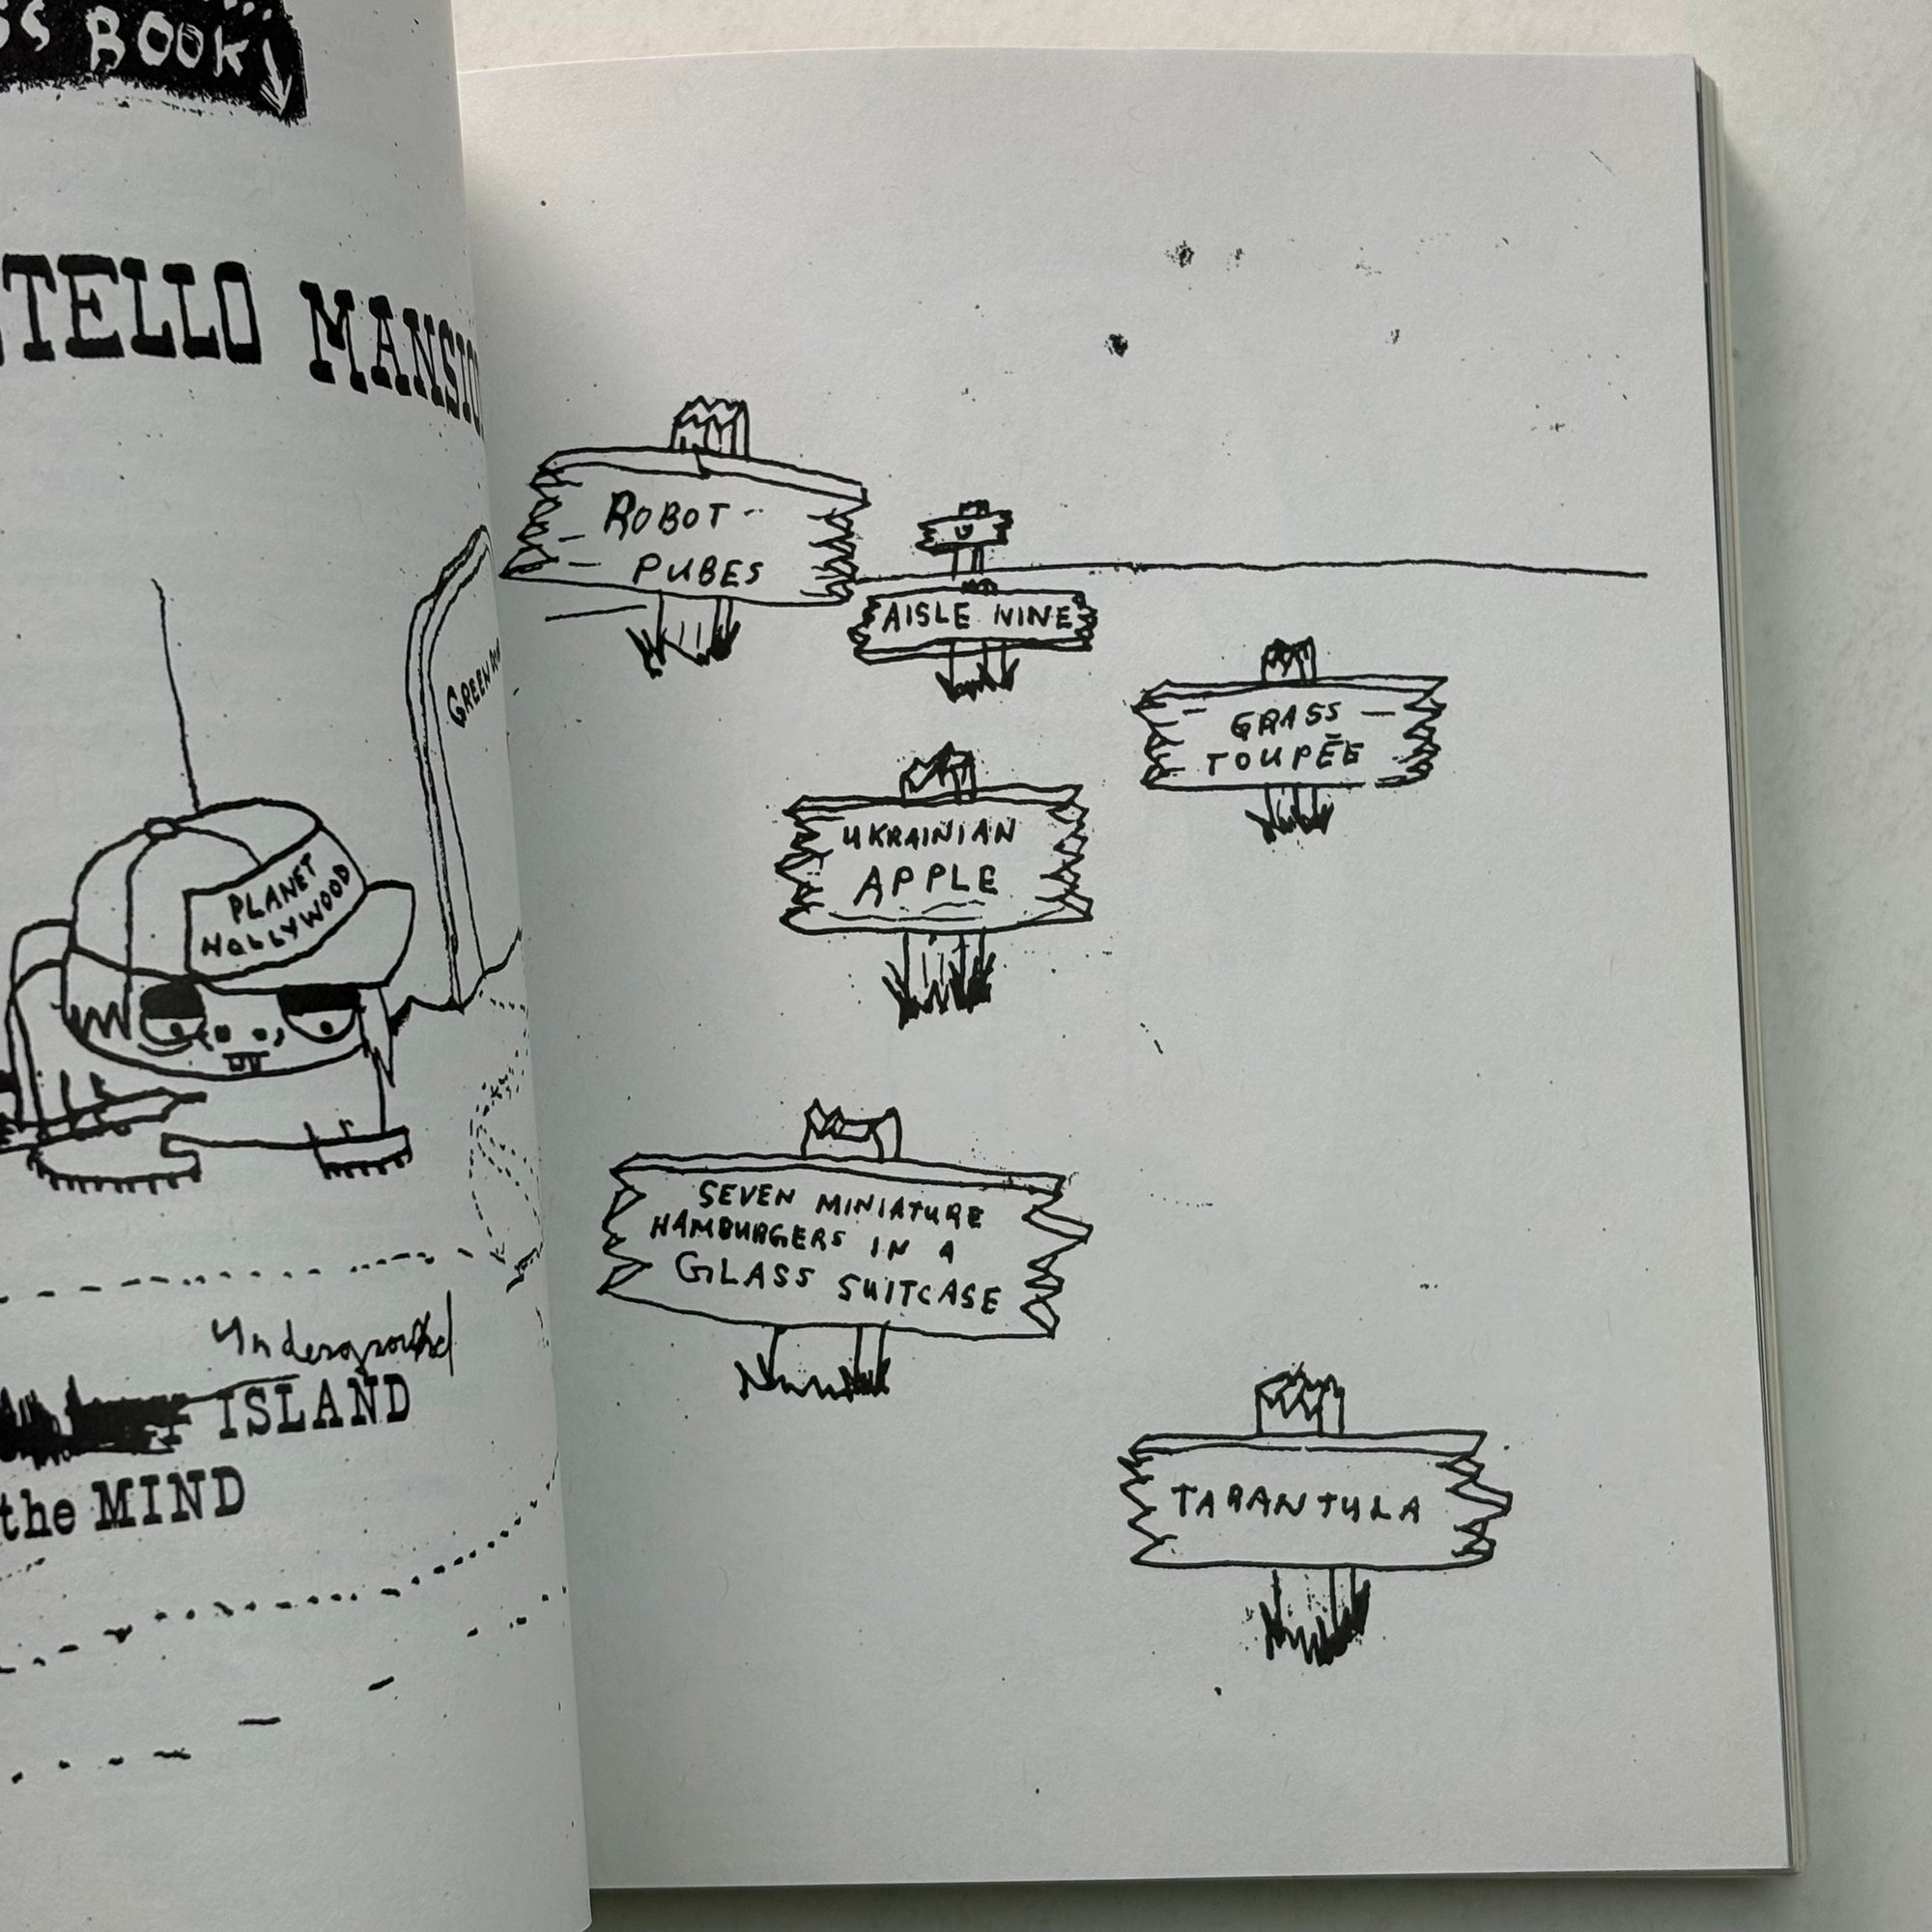 BOOK
TELLO MANSIO
GREEN
PLANET
HOLLYWOOD
Underground
ISLAND
the MIND
ROBOT
PUBES
U
AISLE NINE
GRASS
TOUPĒE
UKRAINIAN
APPLE
SEVEN MINIATURE
HAMBURGERS IN A
GLASS SUITCASE
TARANTULA